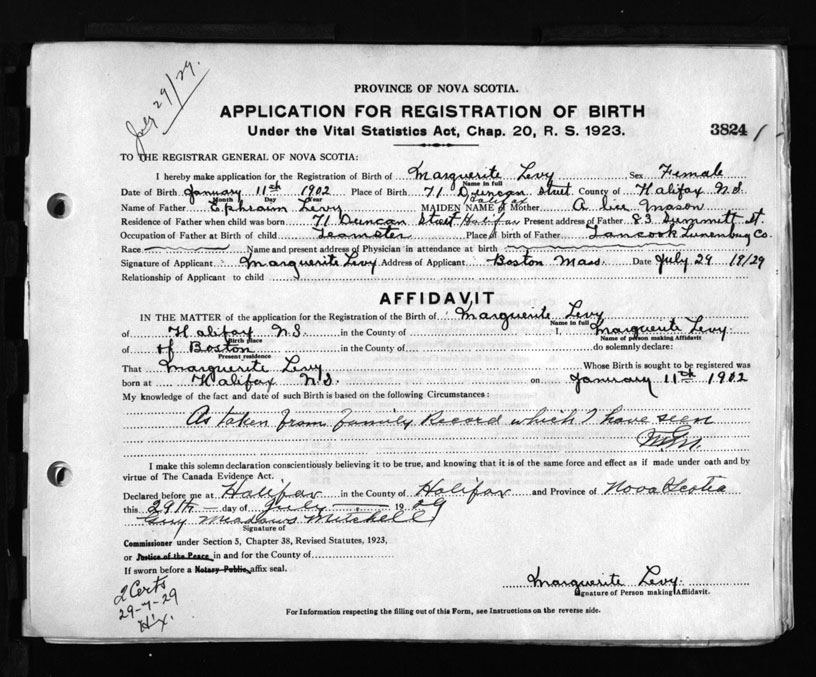 July 29/29.
PROVINCE OF NOVA SCOTIA.
APPLICATION FOR REGISTRATION OF BIRTH
Under the Vital Statistics Act, Chap. 20, R. S. 1923.
3824
TO THE REGISTRAR GENERAL OF NOVA SCOTIA:
I hereby make application for the Registration of Birth of Marguerite Levy Sex Female
Name in full
Date of Birth January 11th 1902 Place of Birth 71 Duncan Street County of Halifax N.S.
Month Day Year Halifax
Name of Father Ephraim Levy MAIDEN NAME of Mother Alice Mason
Residence of Father when child was born 71 Duncan Street Halifax Present address of Father 83 Summitt St.
Occupation of Father at Birth of child Teamster Place of birth of Father Tancook Lunenburg Co.
Race Name and present address of Physician in attendance at birth
Signature of Applicant Marguerite Levy Address of Applicant Boston Mass. Date July 29 19/29
Relationship of Applicant to child
AFFIDAVIT
IN THE MATTER of the application for the Registration of the Birth of Marguerite Levy
Name in full
of Halifax N.S. in the County of I, Marguerite Levy.
Birth place Name of person making Affidavit
of of Boston in the County of do solemnly declare:
Present residence
That Marguerite Levy Whose Birth is sought to be registered was
born at Halifax N.S. on January 11th 1902
My knowledge of the fact and date of such Birth is based on the following Circumstances:
As taken from family Record which I have seen
MGM
I make this solemn declaration conscientiously believing it to be true, and knowing that it is of the same force and effect as if made under oath and by
virtue of The Canada Evidence Act.
Declared before me at Halifax in the County of Halifax and Province of Nova Scotia
this 29th day of July 1929
Guy Meadows Mitchell
Signature of
Commissioner under Section 5, Chapter 38, Revised Statutes, 1923,
or Justice of the Peace in and for the County of
If sworn before a Notary Public, affix seal.
Marguerite Levy.
Signature of Person making Affidavit.
2 Certs
29-7-29
Hx.
For Information respecting the filling out of this Form, see Instructions on the reverse side.